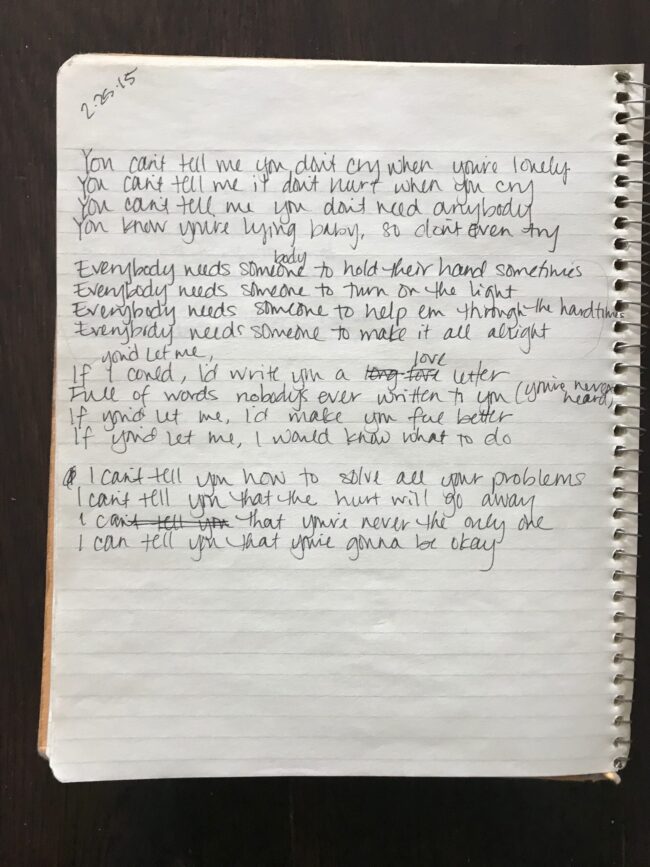 2.25.15
You can't tell me you don't cry when you're lonely
You can't tell me it don't hurt when you cry
You can't tell me you don't need anybody
You know you're lying baby, so don't even try
body
Everybody needs someone to hold their hand sometimes
Everybody needs someone to turn on the light
Everybody needs someone to help em through the hard times
Everybody needs someone to make it all alright
you'd let me,
love
If I could, I'd write you a long love letter
Full of words nobody's ever written to you (you've never heard)
If you'd let me, I'd make you feel better
If you'd let me, I would know what to do
I can't tell you how to solve all your problems
I can't tell you that the hurt will go away
I can't tell you that you're never the only one
I can tell you that you're gonna be okay